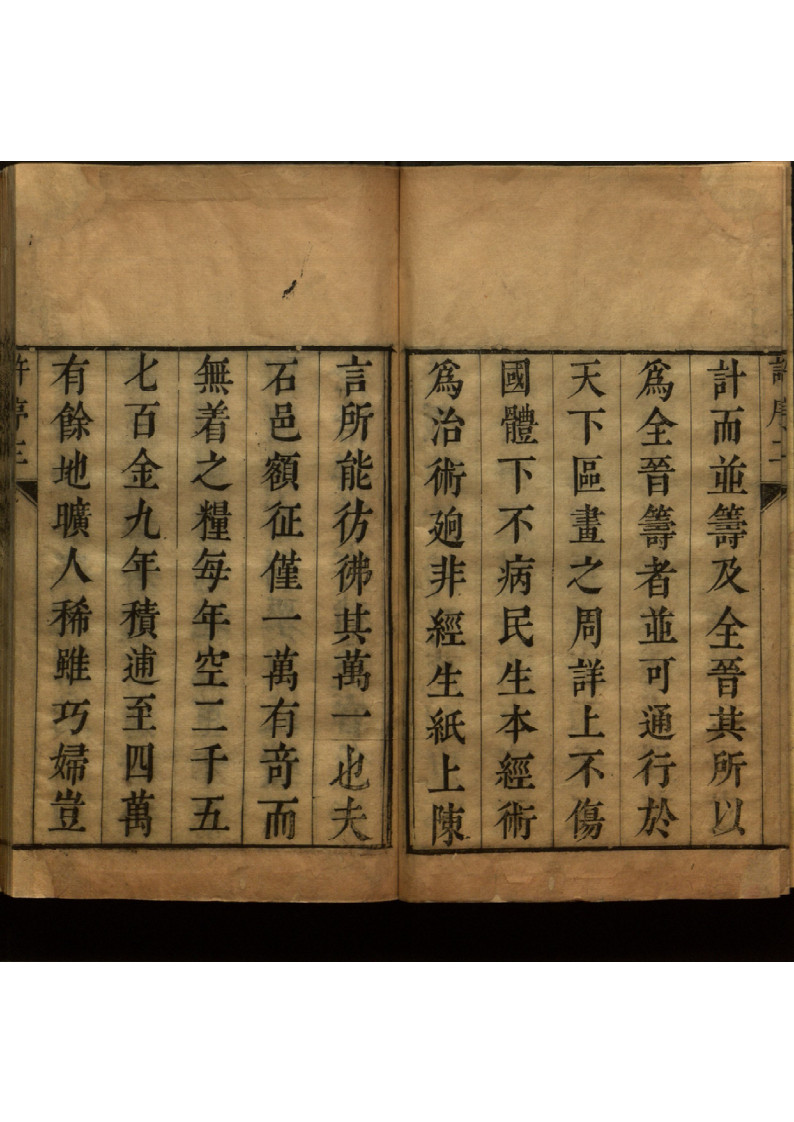 計而並籌及全晉其所以
爲全晉籌者並可通行於
天下區畫之周詳上不傷
國體下不病民生本經術
爲治術廻非經生紙上陳
言所能彷彿其萬一也夫
石邑額征僅一萬有奇而
無着之糧每年空二千五
七百金九年積逋至四萬
有餘地曠人稀雖巧婦豈